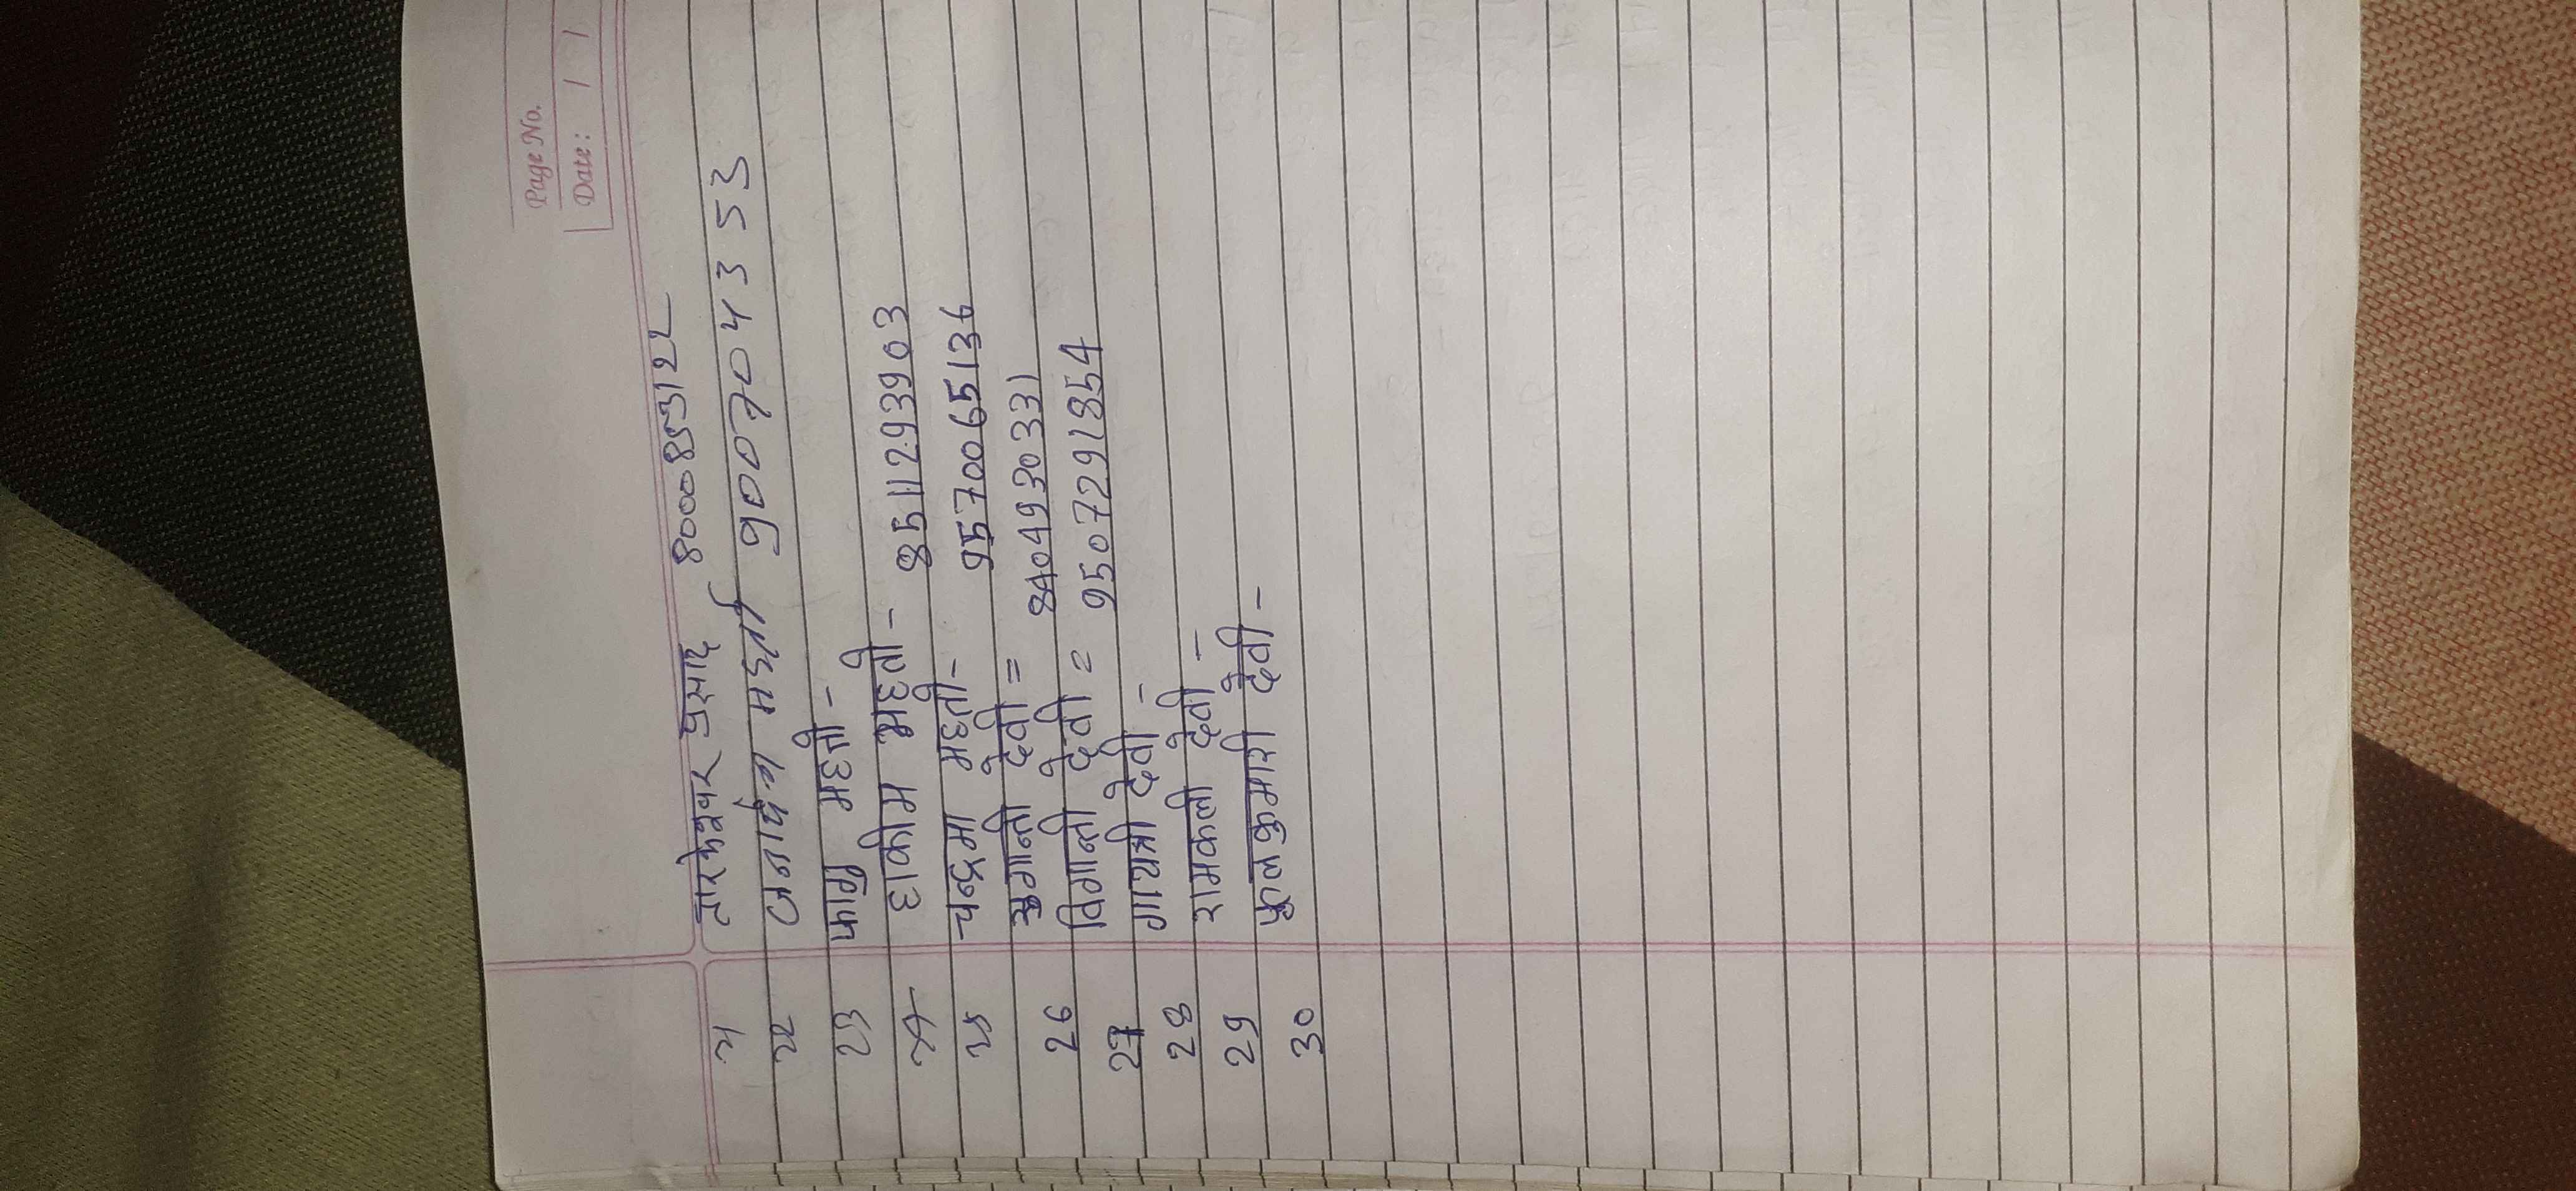 Page No.
Date: / /
21 तारकेश्वर प्रसाद 8000853122
22 जनार्दन महतो 9007704353
23 फागु महतो -
24 हाकीम महतो - 8511293903
25 चन्द्रमा महतो - 9570065136
26 सुगान्ती देवी = 8404930331
27 विगान्ती देवी = 9507291854
28 गायत्री देवी -
29 रामकली देवी -
30 फुलकुमारी देवी -